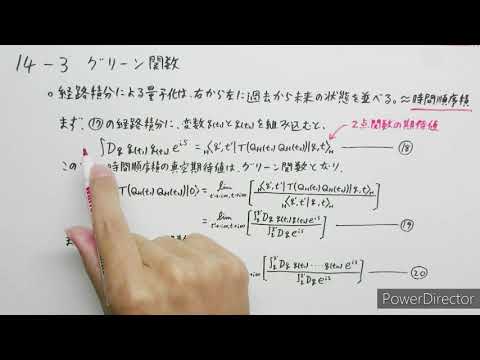 14-3 グリーン関数
○ 経路積分による量子化は、右から左に過去から未来の状態を並べる。≈時間順序積
まず、⑰の経路積分に、変数q(t₁)とq(t₂)を組み込むと、
2点関数の期待値
∫Dq q(t₁)q(t₂) e^{iS} = _H⟨q',t'|T(Q_H(t₁)Q_H(t₂))|q,t⟩_H ─ ⑱
この 時間順序積の真空期待値は、グリーン関数となり、
T(Q_H(t₁)Q_H(t₂))|0⟩ = lim [ _H⟨q',t'|T(Q_H(t₁)Q_H(t₂))|q,t⟩_H / _H⟨q',t'|q,t⟩_H ]
= lim [ Dq q(t₁)q(t₂)e^{iS} / Dq e^{iS} ] ─ ⑲
[ Dq q(t₁)‥‥q(tₙ)e^{iS} / Dq e^{iS} ] ─ ⑳
PowerDirector